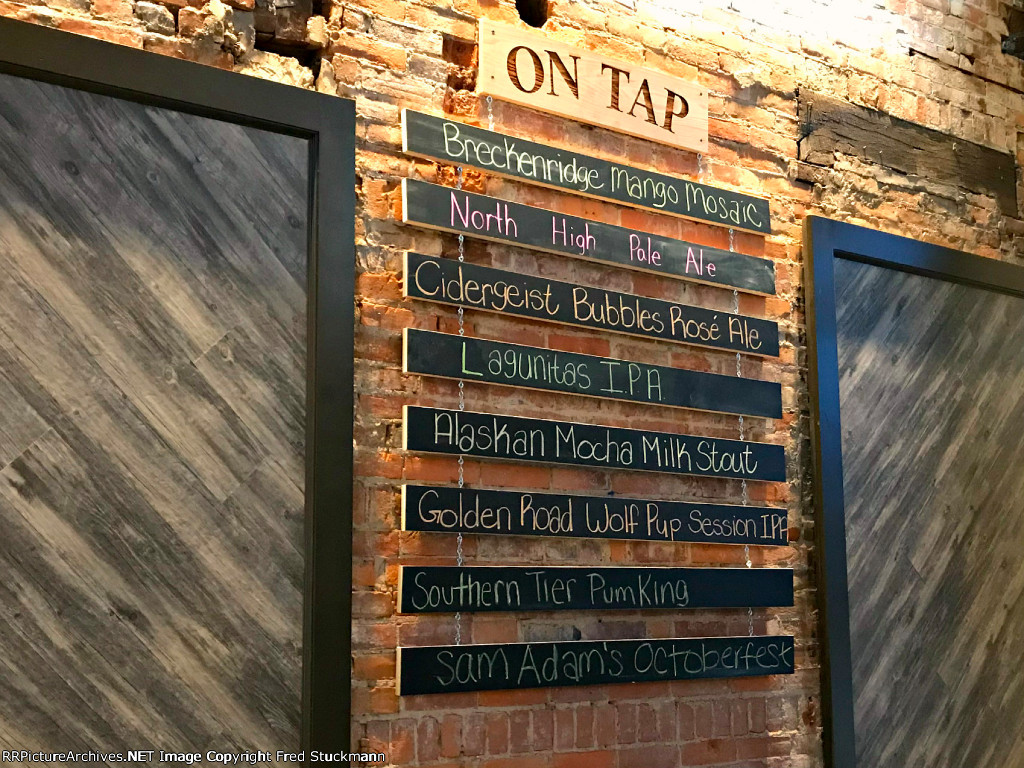 ON TAP
Breckenridge Mango Mosaic
North High Pale Ale
Cidergeist Bubbles Rosé Ale
Lagunitas I.P.A.
Alaskan Mocha Milk Stout
Golden Road Wolf Pup Session IPA
Southern Tier PumKing
Sam Adam's Octoberfest
RRPictureArchives.NET Image Copyright Fred Stuckmann